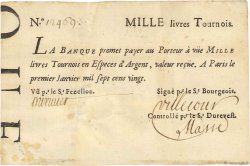 N.º 12469. MILLE livres Tournois.
LA BANQUE promet payer au Porteur à vüe MILLE
livres Tournois en Especes d'Argent, valeur reçüe, A Paris le
premier Janvier mil sept cens vingt.
Vû p.r le S.r Fenellon. Signé p.r le S.r Bourgeois.
Controllé p.r le S.r Durevest.